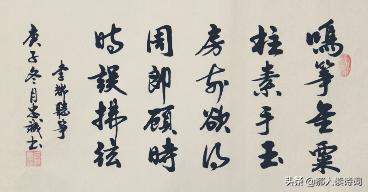 鳴箏金粟
柱素手玉
房前欲得
周郎顧時
時誤拂弦
李端聽箏
庚子冬月忠書
头条